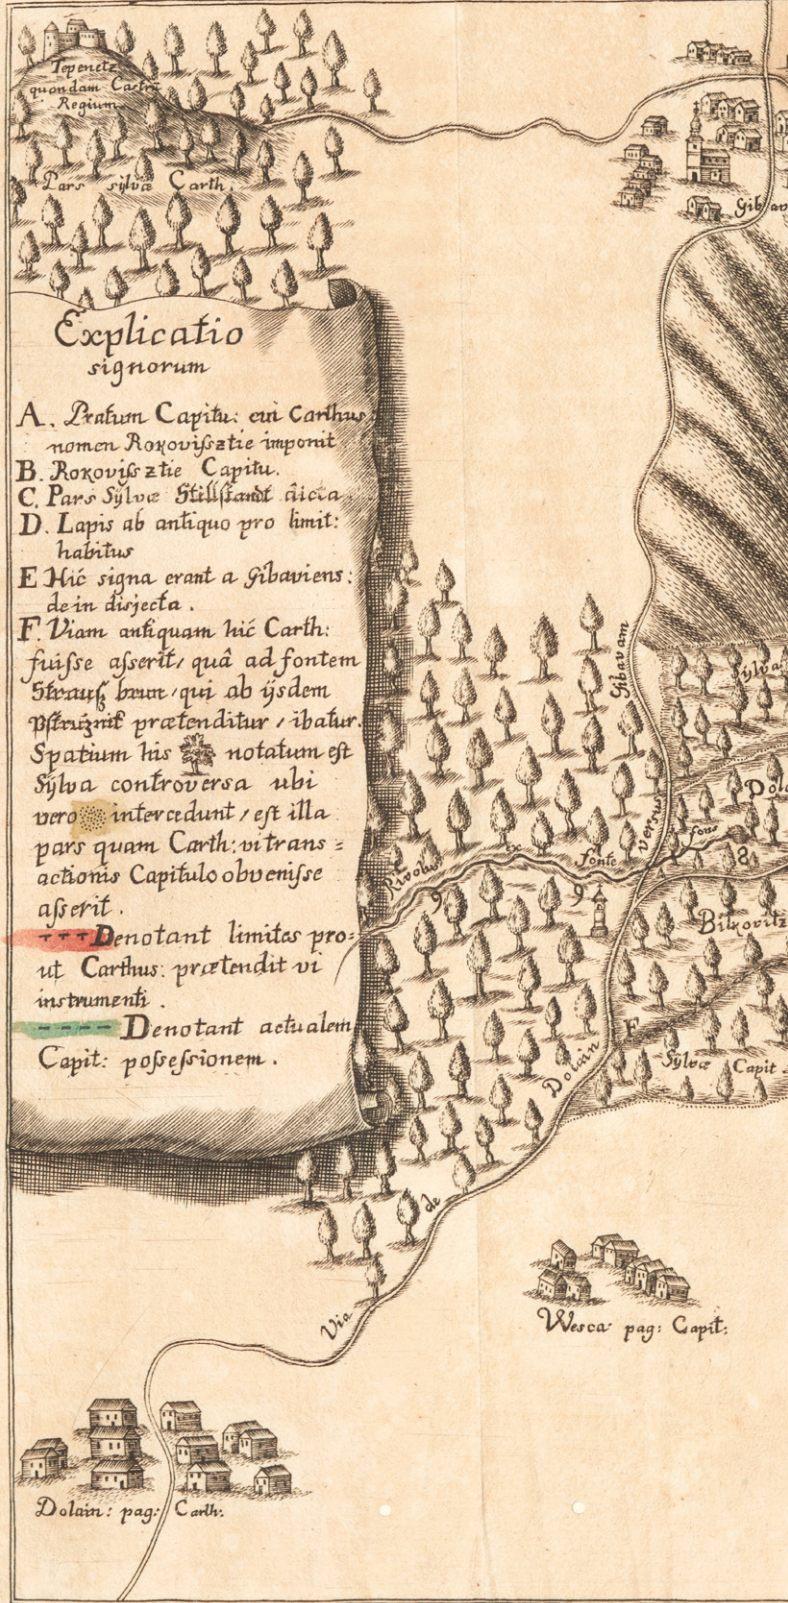 Tepenetz
quondam Castrũ
Regium
Pars sylvæ Carth.
Gibav
Explicatio
signorum
A. Pratum Capitu: cui Carthus
nomen Rokovisſztie imponit
B. Rokovisſztie Capitu.
C. Pars Sÿlvæ Stillſtandt dicta
D. Lapis ab antiquo pro limit:
habitus
E Hic signa erant a Gibaviens:
dein disjecta.
F. Viam antiquam hic Carth:
fuiſse aſserit, quâ ad fontem
Strauſs brun, qui ab ÿsdem
Pſtružnik prætenditur, ibatur.
Spatium his notatum eſt
Sÿlva controversa ubi
vero intercedunt, eſt illa
pars quam Carth: vi trans=
actionis Capitulo obveniſse
aſserit.
Denotant limites pro=
ut Carthus: prætendit vi
instrumenti.
Denotant actualem
Capit: poſseſsionem.
Via de Dolain versus Gibavam
Sylva
Dola
Rivolus ex fonte
fons
8
9
9
Bitkovitz
F
Sÿlvæ Capit
Wesca: pag: Capit:
Dolain: pag: Carth: